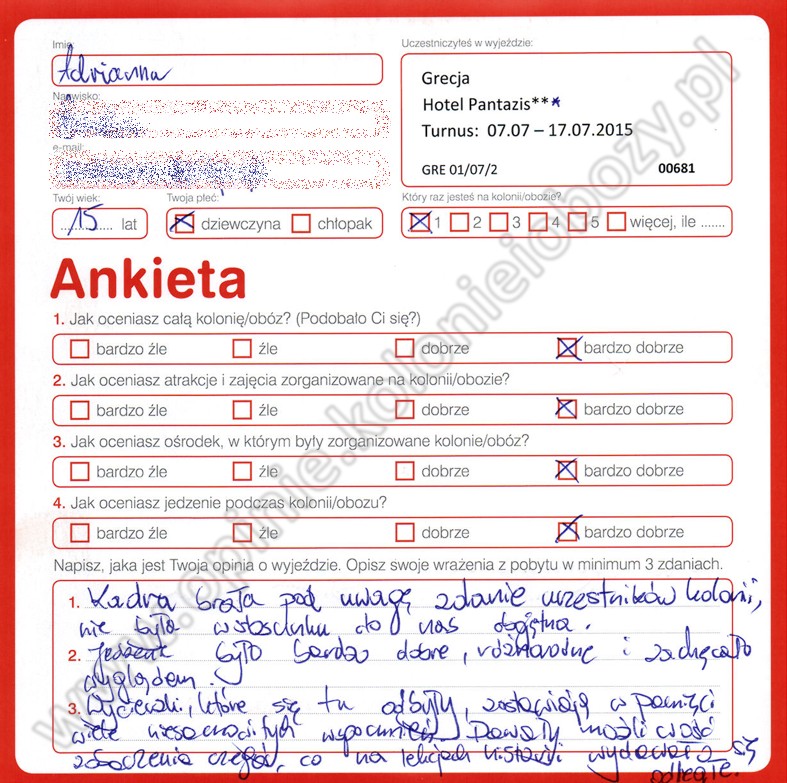 Imię:
Adrianna
Nazwisko:
e-mail:
Twój wiek:
15 lat
Twoja płeć:
dziewczyna chłopak
Uczestniczyłeś w wyjeździe:
Grecja
Hotel Pantazis***
Turnus: 07.07 – 17.07.2015
GRE 01/07/2 00681
Który raz jesteś na kolonii/obozie?
1 2 3 4 5 więcej, ile .......
Ankieta
1. Jak oceniasz całą kolonię/obóz? (Podobało Ci się?)
bardzo źle źle dobrze bardzo dobrze
2. Jak oceniasz atrakcje i zajęcia zorganizowane na kolonii/obozie?
bardzo źle źle dobrze bardzo dobrze
3. Jak oceniasz ośrodek, w którym były zorganizowane kolonie/obóz?
bardzo źle źle dobrze bardzo dobrze
4. Jak oceniasz jedzenie podczas kolonii/obozu?
bardzo źle źle dobrze bardzo dobrze
Napisz, jaka jest Twoja opinia o wyjeździe. Opisz swoje wrażenia z pobytu w minimum 3 zdaniach.
1. Kadra brała pod uwagę zdanie uczestników kolonii,
nie była w stosunku do nas obojętna.
2. Jedzenie było bardzo dobre, różnorodne i zachęcało
wyglądem.
3. Wycieczki, które się tu odbyły, zostawiają w pamięci
wiele niesamowitych wspomnień. Dawały możliwość
zobaczenia czegoś, co na lekcjach historii wydawało się
odległe.
www.opinie.kolonieiobozy.pl